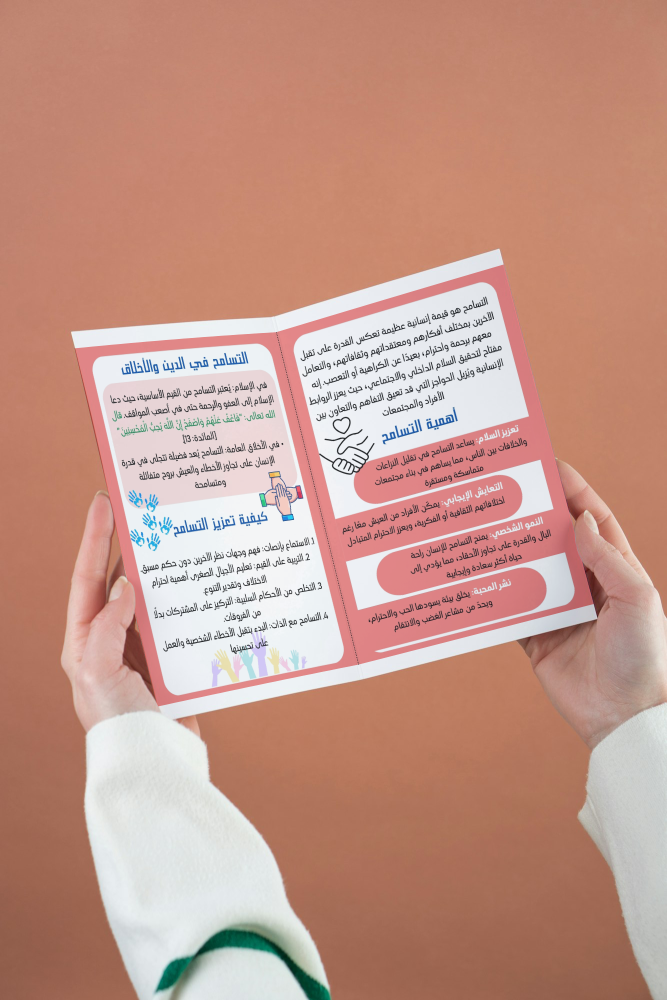 التسامح هو قيمة إنسانية عظيمة تعكس القدرة على تقبل
الآخرين بمختلف أفكارهم ومعتقداتهم وثقافاتهم، والتعامل
معهم برحمة واحترام، بعيدًا عن الكراهية أو التعصب. إنه
مفتاح لتحقيق السلام الداخلي والاجتماعي، حيث يعزز الروابط
الإنسانية ويُزيل الحواجز التي قد تعيق التفاهم والتعاون بين
الأفراد والمجتمعات
أهمية التسامح
تعزيز السلام: يساعد التسامح في تقليل النزاعات
والخلافات بين الناس، مما يساهم في بناء مجتمعات
متماسكة ومستقرة
التعايش الإيجابي: يمكّن الأفراد من العيش معًا رغم
اختلافاتهم الثقافية أو الفكرية، ويعزز الاحترام المتبادل
النمو الشخصي: يمنح التسامح للإنسان راحة
البال والقدرة على تجاوز الأحقاد، مما يؤدي إلى
حياة أكثر سعادة وإيجابية
نشر المحبة: يخلق بيئة يسودها الحب والاحترام،
ويحدّ من مشاعر الغضب والانتقام
التسامح في الدين والأخلاق
في الإسلام: يُعتبر التسامح من القيم الأساسية، حيث دعا
الإسلام إلى العفو والرحمة حتى في أصعب المواقف. قال
الله تعالى: "فَاعْفُ عَنْهُمْ وَاصْفَحْ إِنَّ اللَّهَ يُحِبُّ الْمُحْسِنِينَ"
[المائدة: 13]
• في الأخلاق العامة: التسامح يُعد فضيلة تتجلى في قدرة
الإنسان على تجاوز الأخطاء والعيش بروح متفائلة
ومتسامحة
كيفية تعزيز التسامح
1. الاستماع بإنصات: فهم وجهات نظر الآخرين دون حكم مسبق.
2. التربية على القيم: تعليم الأجيال الصغرى أهمية احترام
الاختلاف وتقدير التنوع.
3. التخلص من الأحكام السلبية: التركيز على المشتركات بدلًا
من الفروقات.
4. التسامح مع الذات: البدء بتقبل الأخطاء الشخصية والعمل
على تحسينها